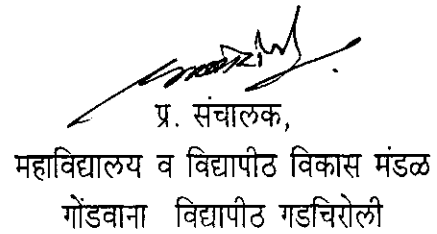 प्र. संचालक,
महाविद्यालय व विद्यापीठ विकास मंडळ
गोंडवाना विद्यापीठ गडचिरोली